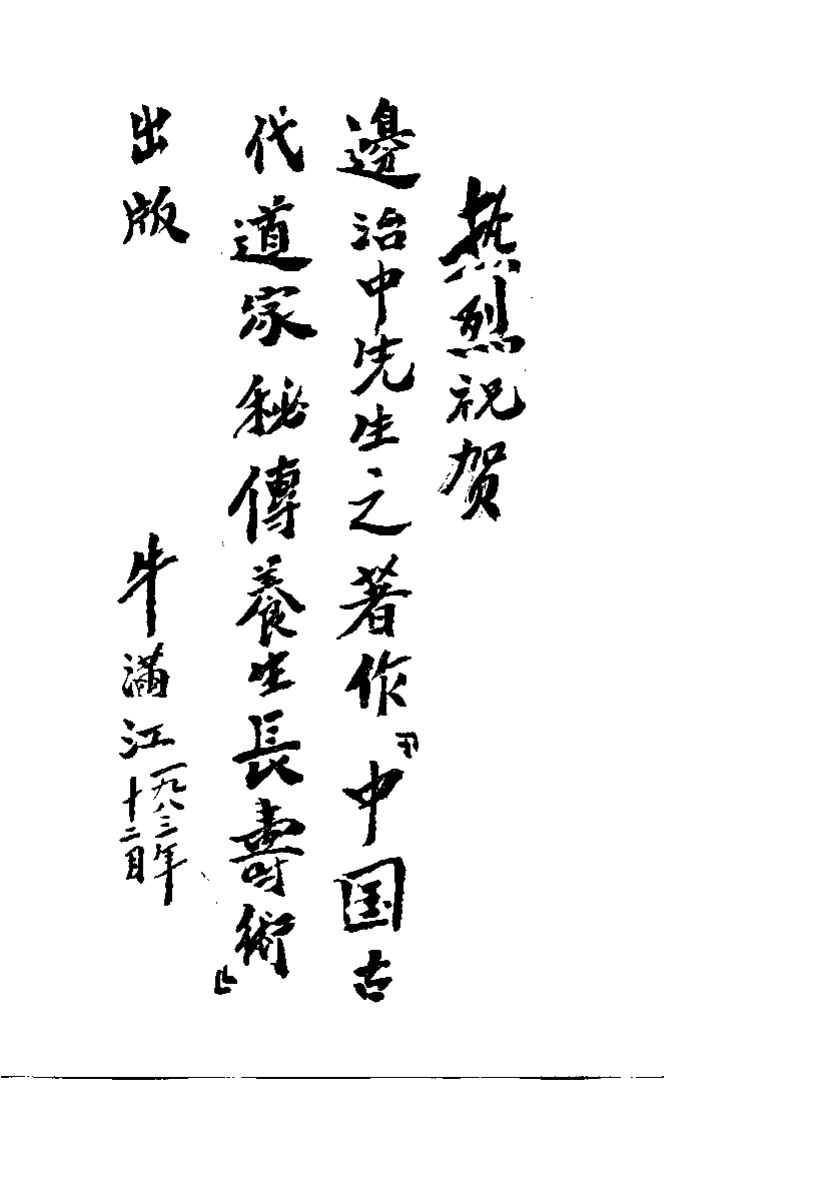 热烈祝贺
邊治中先生之著作『中国古
代道家秘傳養生長壽術』
出版
牛满江
一九八三年
十二月